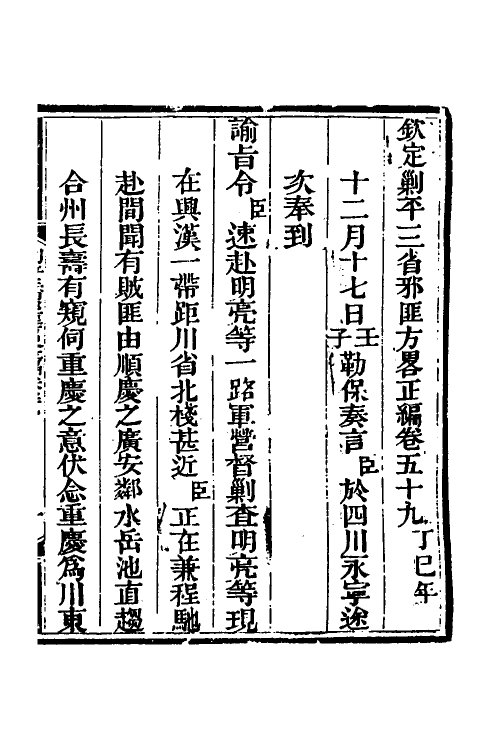 欽定剿平三省邪匪方畧正編卷五十九丁巳年
十二月十七日壬子勒保奏言臣於四川永寧途
次奉到
諭旨令臣速赴明亮等一路軍營督剿查明亮等現
在興漢一帶距川省北棧甚近臣正在兼程馳
赴間聞有賊匪由順慶之廣安鄰水岳池直趨
合州長壽有窺伺重慶之意伏念重慶爲川東